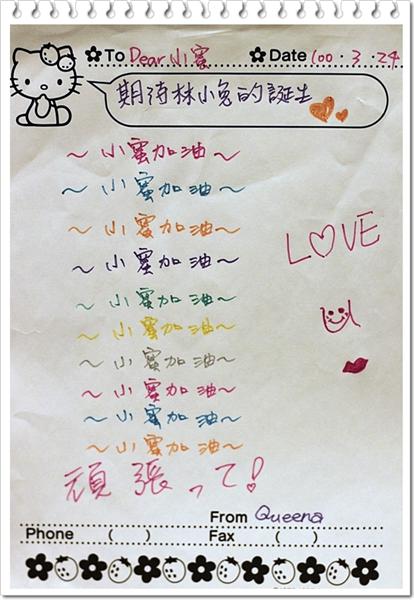 To Dear 小蜜 Date 100.3.24
期待林小兔的誕生
～小蜜加油～
～小蜜加油～
～小蜜加油～
～小蜜加油～
～小蜜加油～
～小蜜加油～
～小蜜加油～
～小蜜加油～
～小蜜加油～
～小蜜加油～
LOVE
頑張って!
From Queena
Phone ( ) Fax ( )